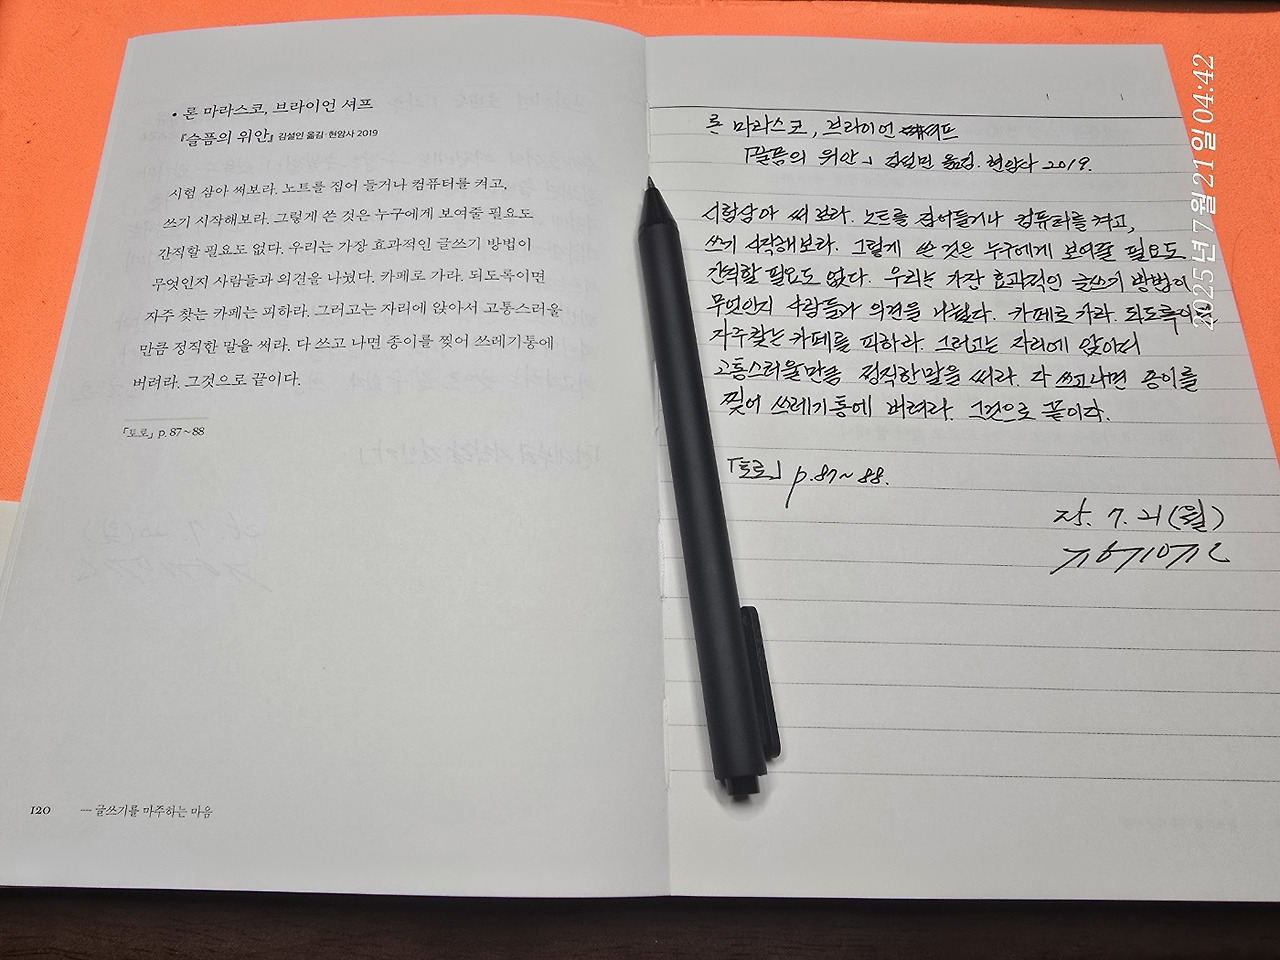 • 론 마라스코, 브라이언 셔프
『슬픔의 위안』 김설인 옮김·현암사 2019
시험 삼아 써보라. 노트를 집어 들거나 컴퓨터를 켜고,
쓰기 시작해보라. 그렇게 쓴 것은 누구에게 보여줄 필요도
간직할 필요도 없다. 우리는 가장 효과적인 글쓰기 방법이
무엇인지 사람들과 의견을 나눴다. 카페로 가라. 되도록이면
자주 찾는 카페는 피하라. 그러고는 자리에 앉아서 고통스러울
만큼 정직한 말을 써라. 다 쓰고 나면 종이를 찢어 쓰레기통에
버려라. 그것으로 끝이다.
『토로』 p.87~88
120 — 글쓰기를 마주하는 마음
론 마라스코, 브라이언 셔프
「슬픔의 위안」 김설인 옮김. 현암사 2019.
시험삼아 써 보라. 노트를 집어들거나 컴퓨터를 켜고,
쓰기 시작해보라. 그렇게 쓴 것은 누구에게 보여줄 필요도
간직할 필요도 없다. 우리는 가장 효과적인 글쓰기 방법이
무엇인지 사람들과 의견을 나눴다. 카페로 가라. 되도록이면
자주찾는 카페를 피하라. 그러고는 자리에 앉아서
고통스러울만큼 정직한 말을 써라. 다 쓰고나면 종이를
찢어 쓰레기통에 버려라. 그것으로 끝이다.
「토로」 p.87~88.
25. 7. 21(월)
2025년 7월 21일 04:42